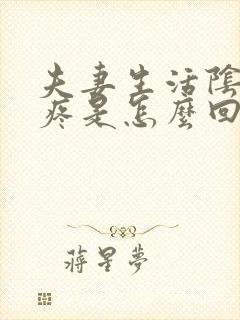 夫妻生活陰
疼是怎麼回
蔣星夢